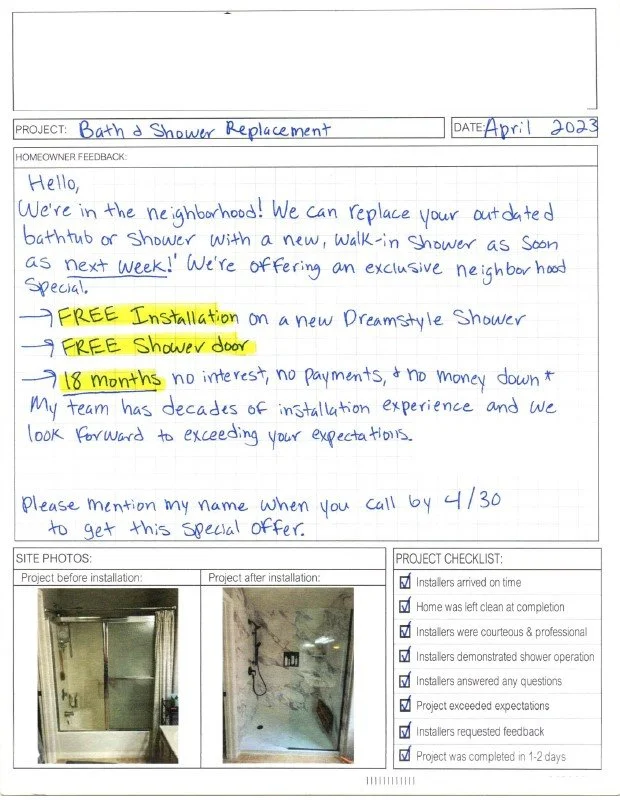 PROJECT: Bath & Shower Replacement
DATE: April 2023
HOMEOWNER FEEDBACK:
Hello,
We're in the neighborhood! We can replace your outdated
bathtub or shower with a new, walk-in shower as soon
as next week! We're offering an exclusive neighborhood
special.
→ FREE Installation on a new Dreamstyle Shower
→ FREE Shower door
→ 18 months no interest, no payments, & no money down*
My team has decades of installation experience and we
look forward to exceeding your expectations.
Please mention my name when you call by 4/30
to get this special offer.
SITE PHOTOS:
Project before installation:
Project after installation:
PROJECT CHECKLIST:
Installers arrived on time
Home was left clean at completion
Installers were courteous & professional
Installers demonstrated shower operation
Installers answered any questions
Project exceeded expectations
Installers requested feedback
Project was completed in 1-2 days